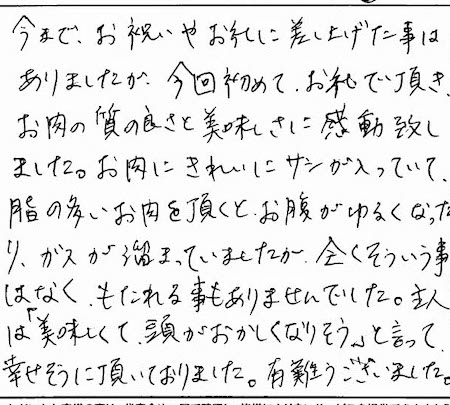 今まで、お祝いやお礼に差し上げた事は
ありましたが、今回初めて、お礼で頂き、
お肉の質の良さと美味しさに感動致し
ました。お肉にきれいにサシが入っていて、
脂の多いお肉を頂くと、お腹がゆるくなった
り、ガスが溜まっていましたが、全くそういう事
はなく、もたれる事もありませんでした。主人
は「美味しくて、頭がおかしくなりそう」と言って、
幸せそうに頂いておりました。有難うございました。